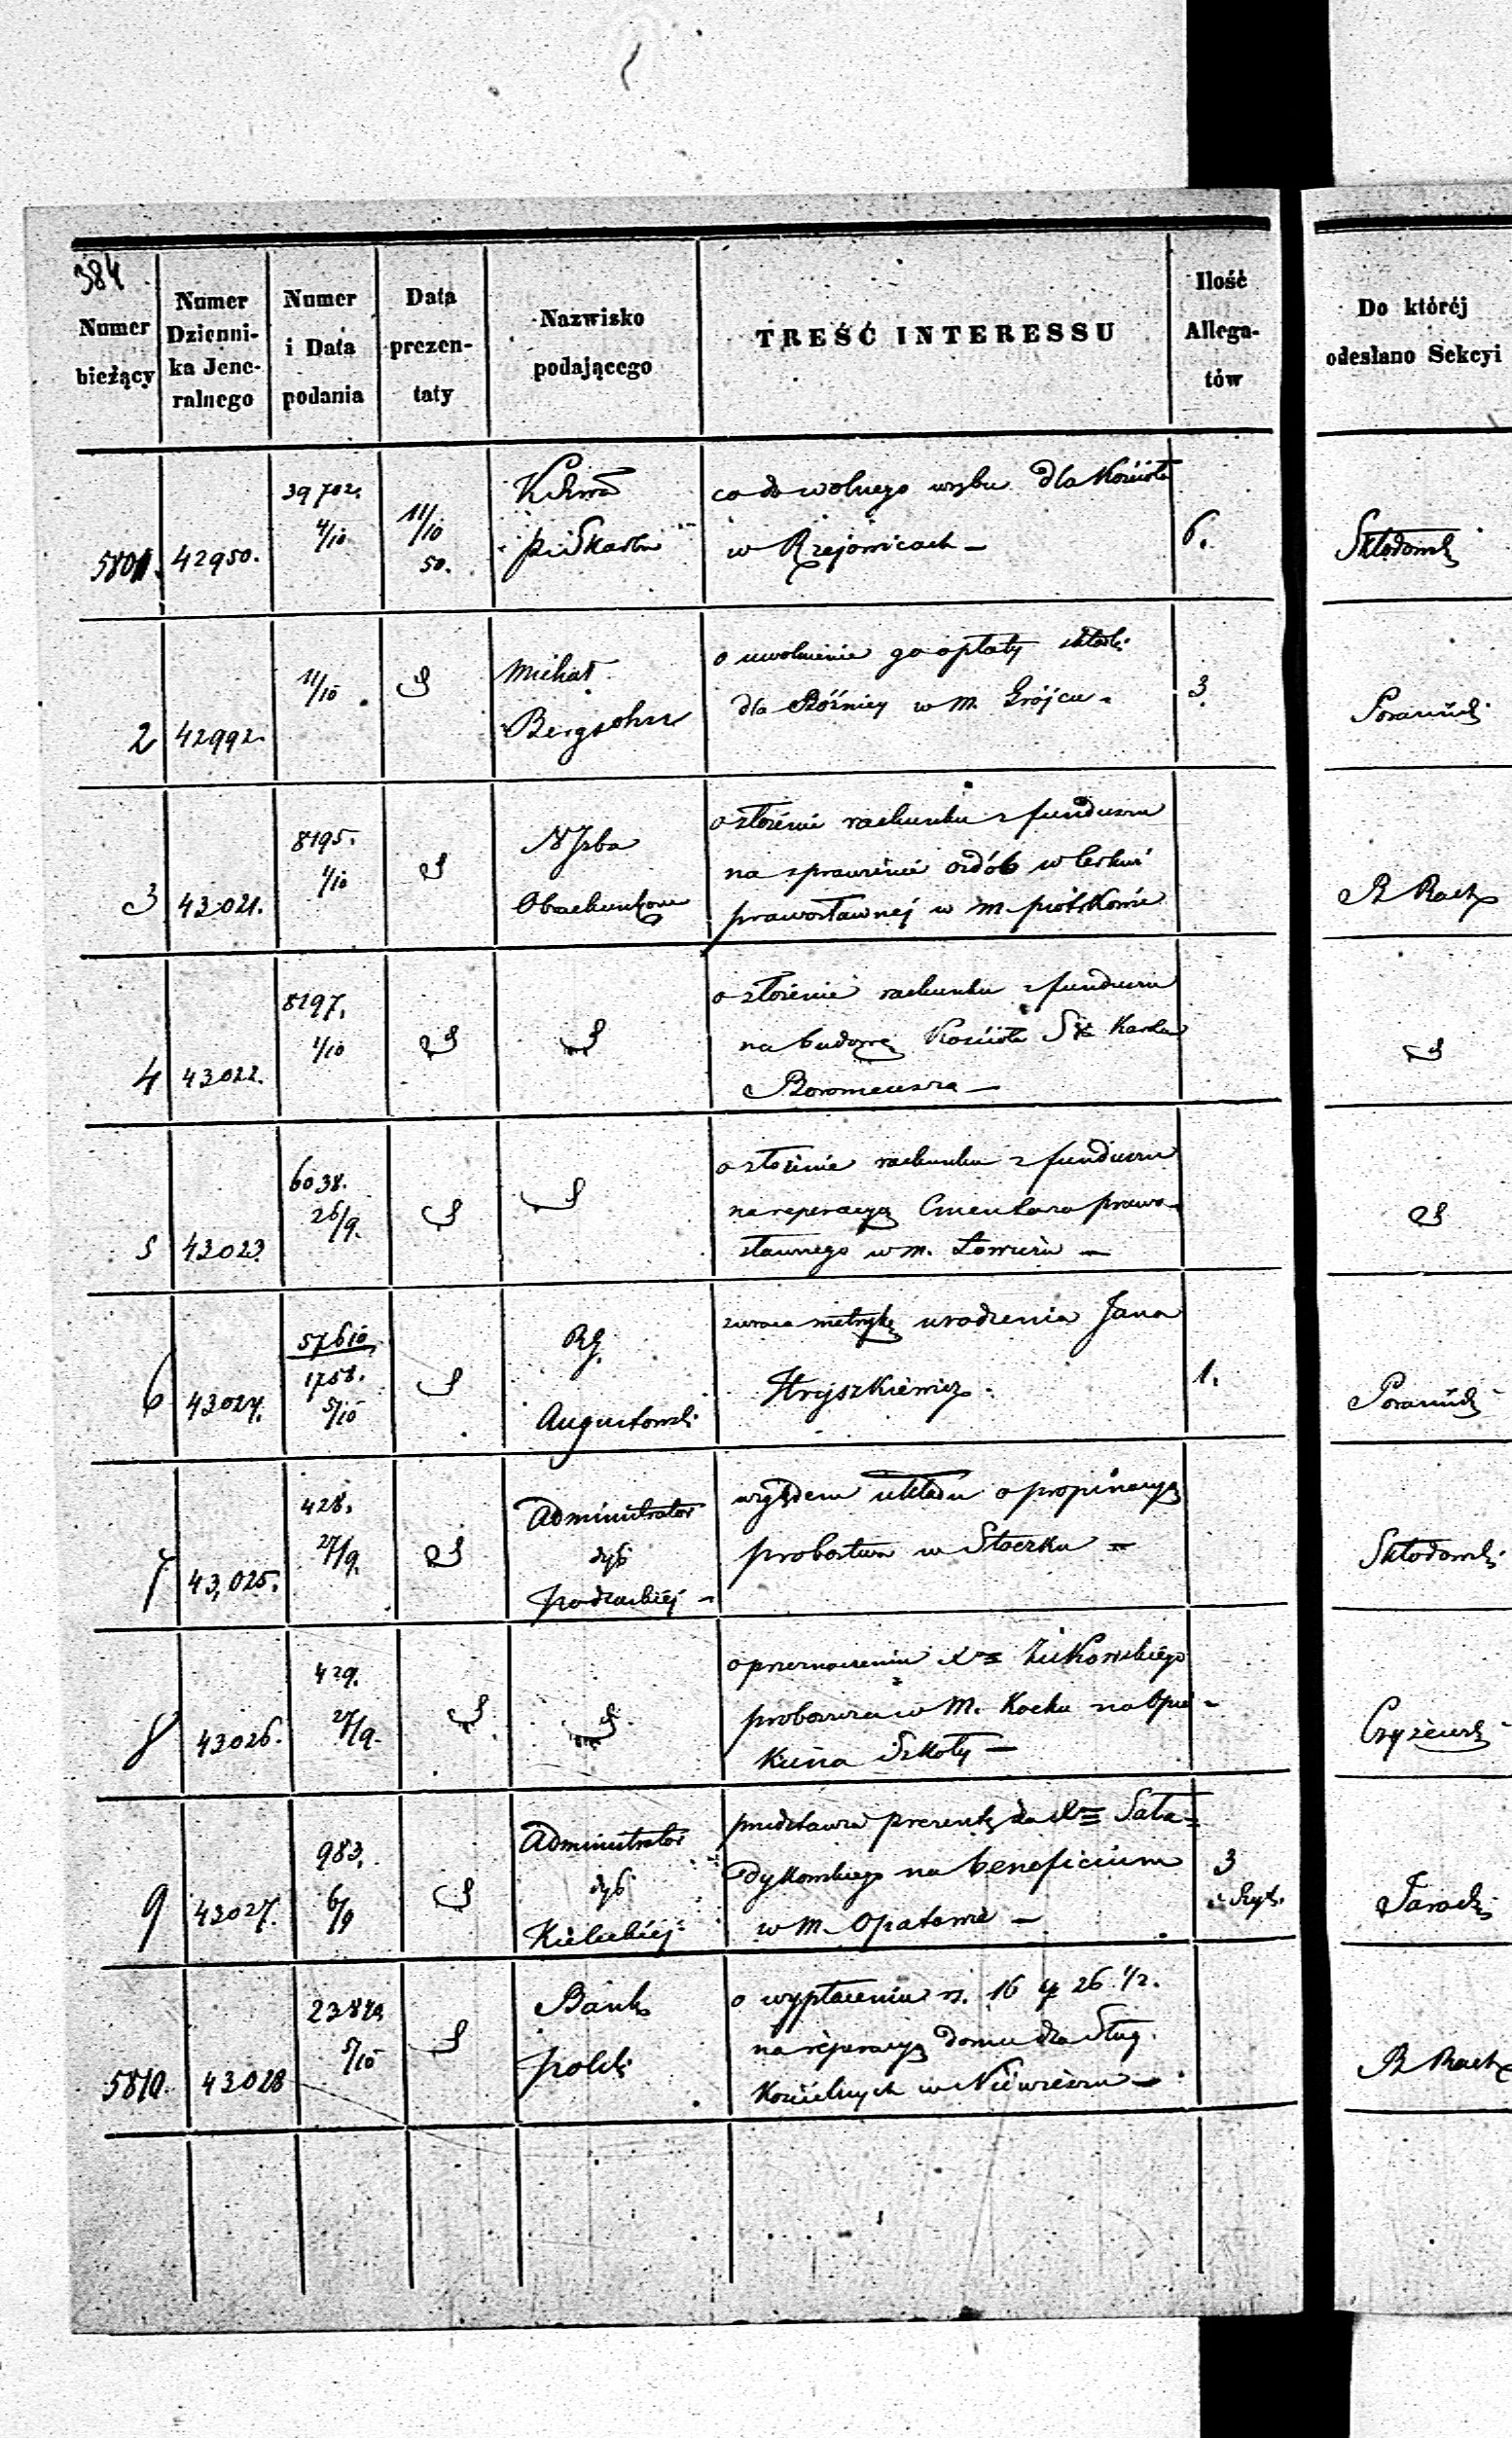 384
Numer
bieżący
Numer
Dzienni-
ka Jene-
ralnego
Numer
i Data
podania
Data
prezen-
taty
Nazwisko
podającego
TREŚĆ INTERESSU
Ilość
Allega-
tów
Do któréj
odesłano Sekcyi
5801. 42950.
39702.
4/10
11/10
50.
co do wolnego wrębu dla Kościoła
w Rzejowicach —
6.
2 42992.
11/10
Michał
Bergsohn
o uwolnienie go opłaty składki
dla Bóźnicy w m. Grójcu.
3.
3 43021.
8195.
1/10
N Izba
Obrachunkowa
o złożenie rachunku z funduszu
na sprawienie ozdób w Cerkwi
prawosławnej w m. Piotrkowie
R Rach
4 43022.
8197.
1/10
o złożenie rachunku z funduszu
na budowę Kościoła Karola
Boromeusza —
5 43023.
6038.
26/9.
o złożenie rachunku z funduszu
na reperacyą Cmentarza prawo-
sławnego w m. Łowiczu —
6 43024.
57610
1758.
5/10
RG.
Augustowski
zwraca metrykę urodzenia Jana
Hryszkiewicz.
1.
7 43,025.
428.
27/9.
Administrator
dyec
Podlaskiéj —
względem układu o propinacyą
probostwa w Stoczku —
Skłodowski
8 43026.
429.
27/9.
o przeznaczeniu Xa Żukowskiego
proboszcza w M. Kocku na Opie-
kuna Szkoły —
9 43027.
983.
6/9
Administrator
dyec
Kieleckiéj
przedstawia prezentę dla Xa Sała-
dykowskiego na beneficium
w M. Opatowie —
3
5810. 43028
5/10
Bank
Polski
o wypłaceniu rs. 16 k 26 1/2.
na reperacyą domu dla Sług
Kościelnych w Niewieszu —
R Rach